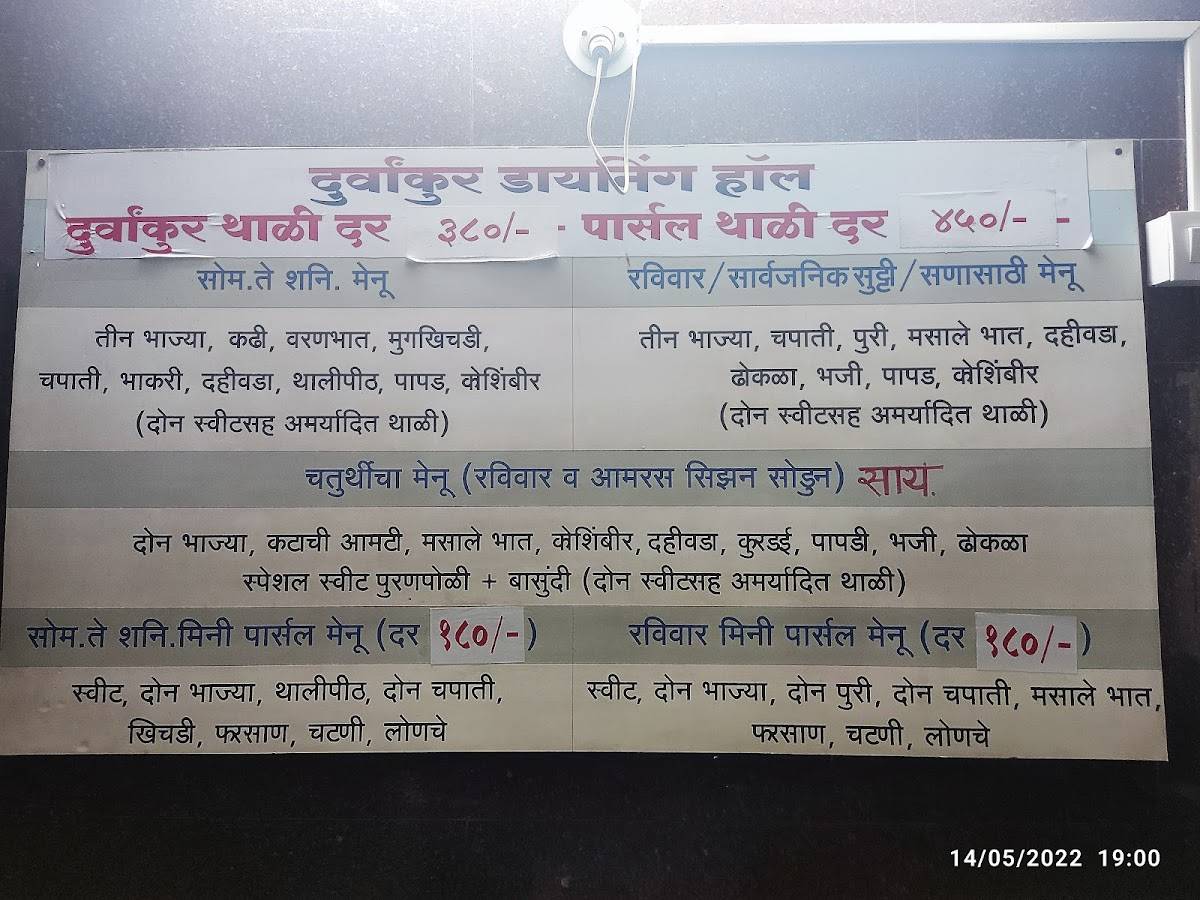 दुर्वांकुर डायनिंग हॉल
दुर्वांकुर थाळी दर ३८०/- - पार्सल थाळी दर ४५०/- -
सोम.ते शनि. मेनू
तीन भाज्या, कढी, वरणभात, मुगखिचडी,
चपाती, भाकरी, दहीवडा, थालीपीठ, पापड, कोशिंबीर
(दोन स्वीटसह अमर्यादित थाळी)
रविवार/सार्वजनिक सुट्टी/सणासाठी मेनू
तीन भाज्या, चपाती, पुरी, मसाले भात, दहीवडा,
ढोकळा, भजी, पापड, कोशिंबीर
(दोन स्वीटसह अमर्यादित थाळी)
चतुर्थीचा मेनू (रविवार व आमरस सिझन सोडुन) सायं.
दोन भाज्या, कटाची आमटी, मसाले भात, कोशिंबीर, दहीवडा, कुरडई, पापडी, भजी, ढोकळा
स्पेशल स्वीट पुरणपोळी + बासुंदी (दोन स्वीटसह अमर्यादित थाळी)
सोम.ते शनि.मिनी पार्सल मेनू (दर १८०/-)
स्वीट, दोन भाज्या, थालीपीठ, दोन चपाती,
खिचडी, फरसाण, चटणी, लोणचे
रविवार मिनी पार्सल मेनू (दर १८०/-)
स्वीट, दोन भाज्या, दोन पुरी, दोन चपाती, मसाले भात,
फरसाण, चटणी, लोणचे
14/05/2022 19:00